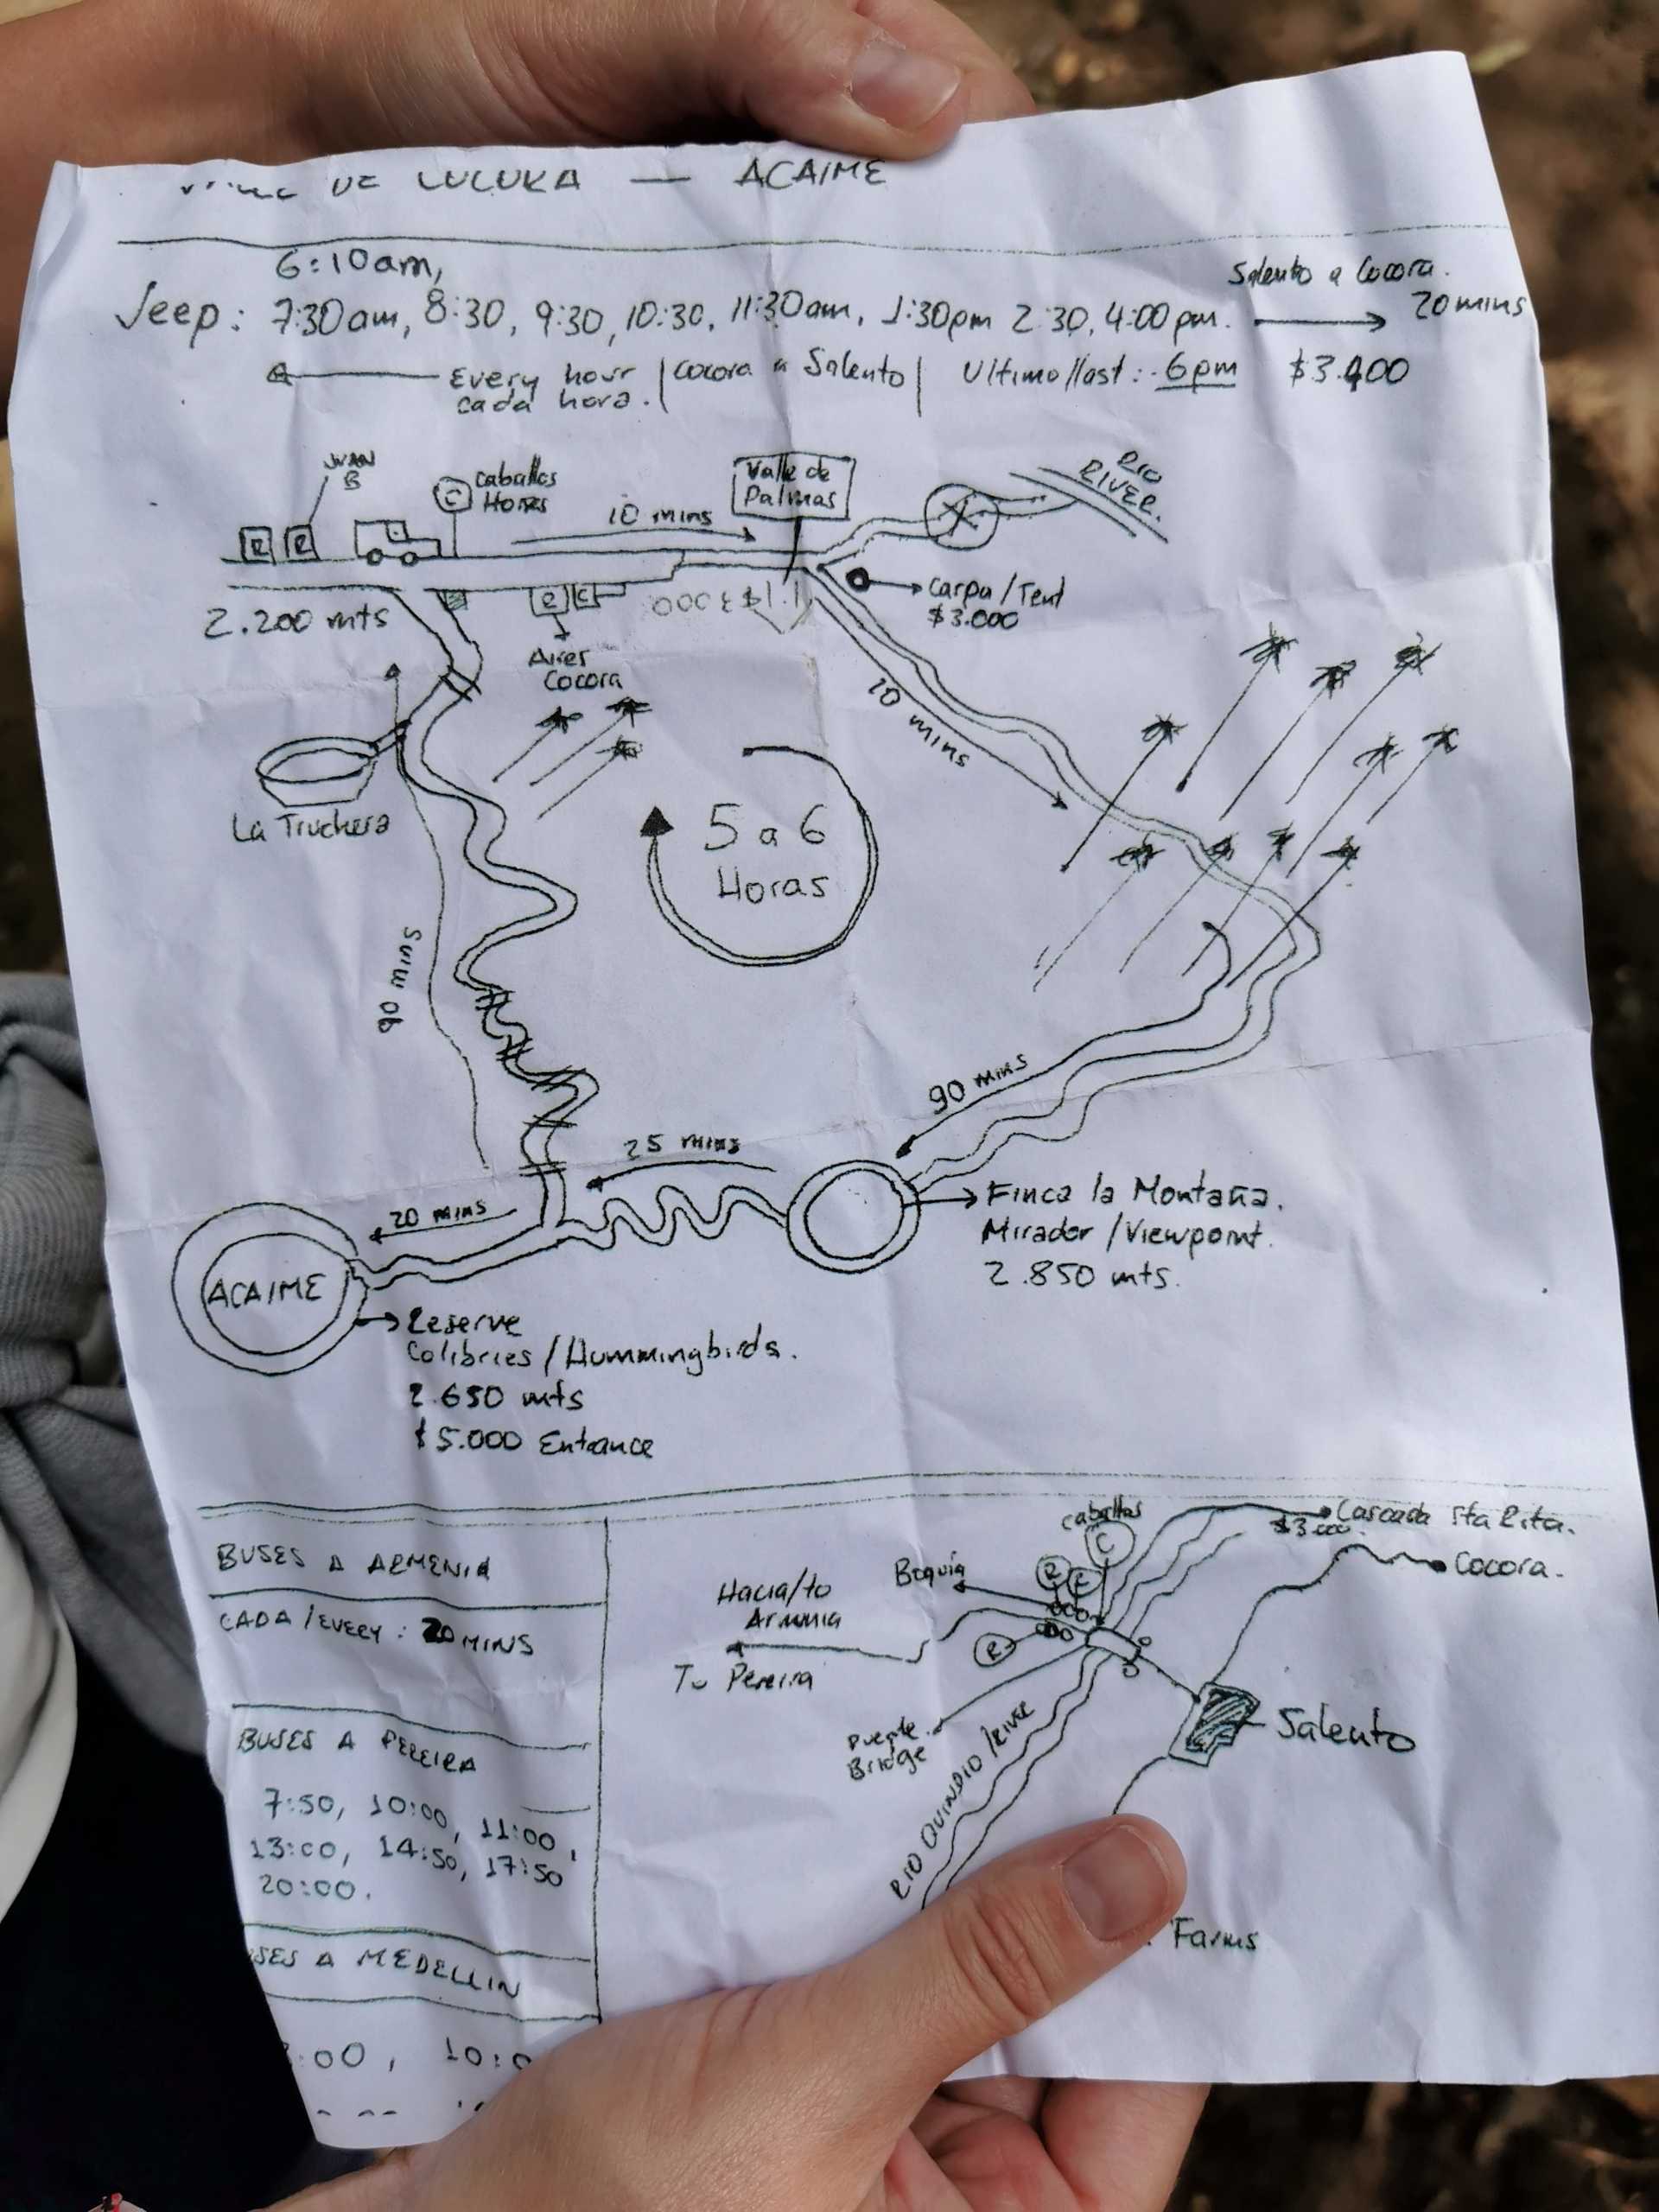 DE COCORA — ACAIME
6:10am,
Salento a Cocora.
Jeep: 7:30am, 8:30, 9:30, 10:30, 11:30am, 1:30pm 2:30, 4:00pm.
20 mins
Every hour
cada hora.
Cocora a Salento
Ultimo/last: 6pm
$3.400
JUAN
B
C
Caballos
Horses
10 mins
Valle de
Palmas
RIO
RIVER.
R R
R C
2.200 mts
Aires
Cocora
Carpa/Tent
$3.000
10 mins
La Truchera
5 a 6
Horas
90 mins
90 mins
25 mins
20 mins
Finca la Montaña.
Mirador/Viewpoint.
2.850 mts.
ACAIME
Reserve
Colibries/Hummingbirds.
2.650 mts
$5.000 Entrance
BUSES A ARMENIA
CADA/EVERY: 20 MINS
BUSES A PEREIRA
7:50, 10:00, 11:00,
13:00, 14:50, 17:50
20:00.
SES A MEDELLIN
:00, 10:0
caballos
C
Cascada Sta Rita.
Cocora.
Boquia
R
R
Hacia/to
Armenia
To Pereira
Puente
Bridge
RIO QUINDIO/RIVE
Salento
Farms